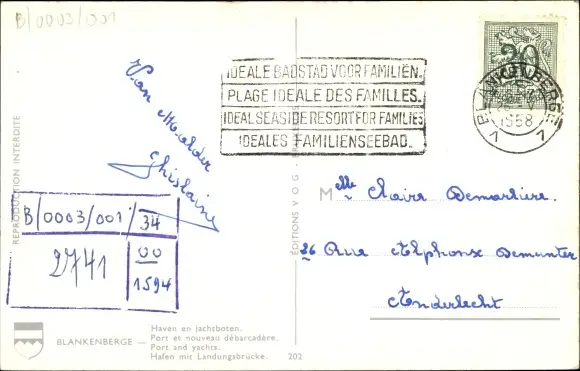 B/0003/001
IDEALE BADSTAD VOOR FAMILIËN.
PLAGE IDEALE DES FAMILLES.
IDEAL SEASIDE RESORT FOR FAMILIES
IDEALES FAMILIENSEEBAD.
BLANKENBERGE
1958
Van Mulder
Ghislaine
REPRODUCTION INTERDITE
B/0003/001/34
2741
00
1594
ÉDITIONS V O G
Mlle Claire Demartière.
26 Rue Alphonse Demunter
Anderlecht
BLANKENBERGE –
Haven en jachtboten.
Port et nouveau débarcadère.
Port and yachts.
Hafen mit Landungsbrücke.
202